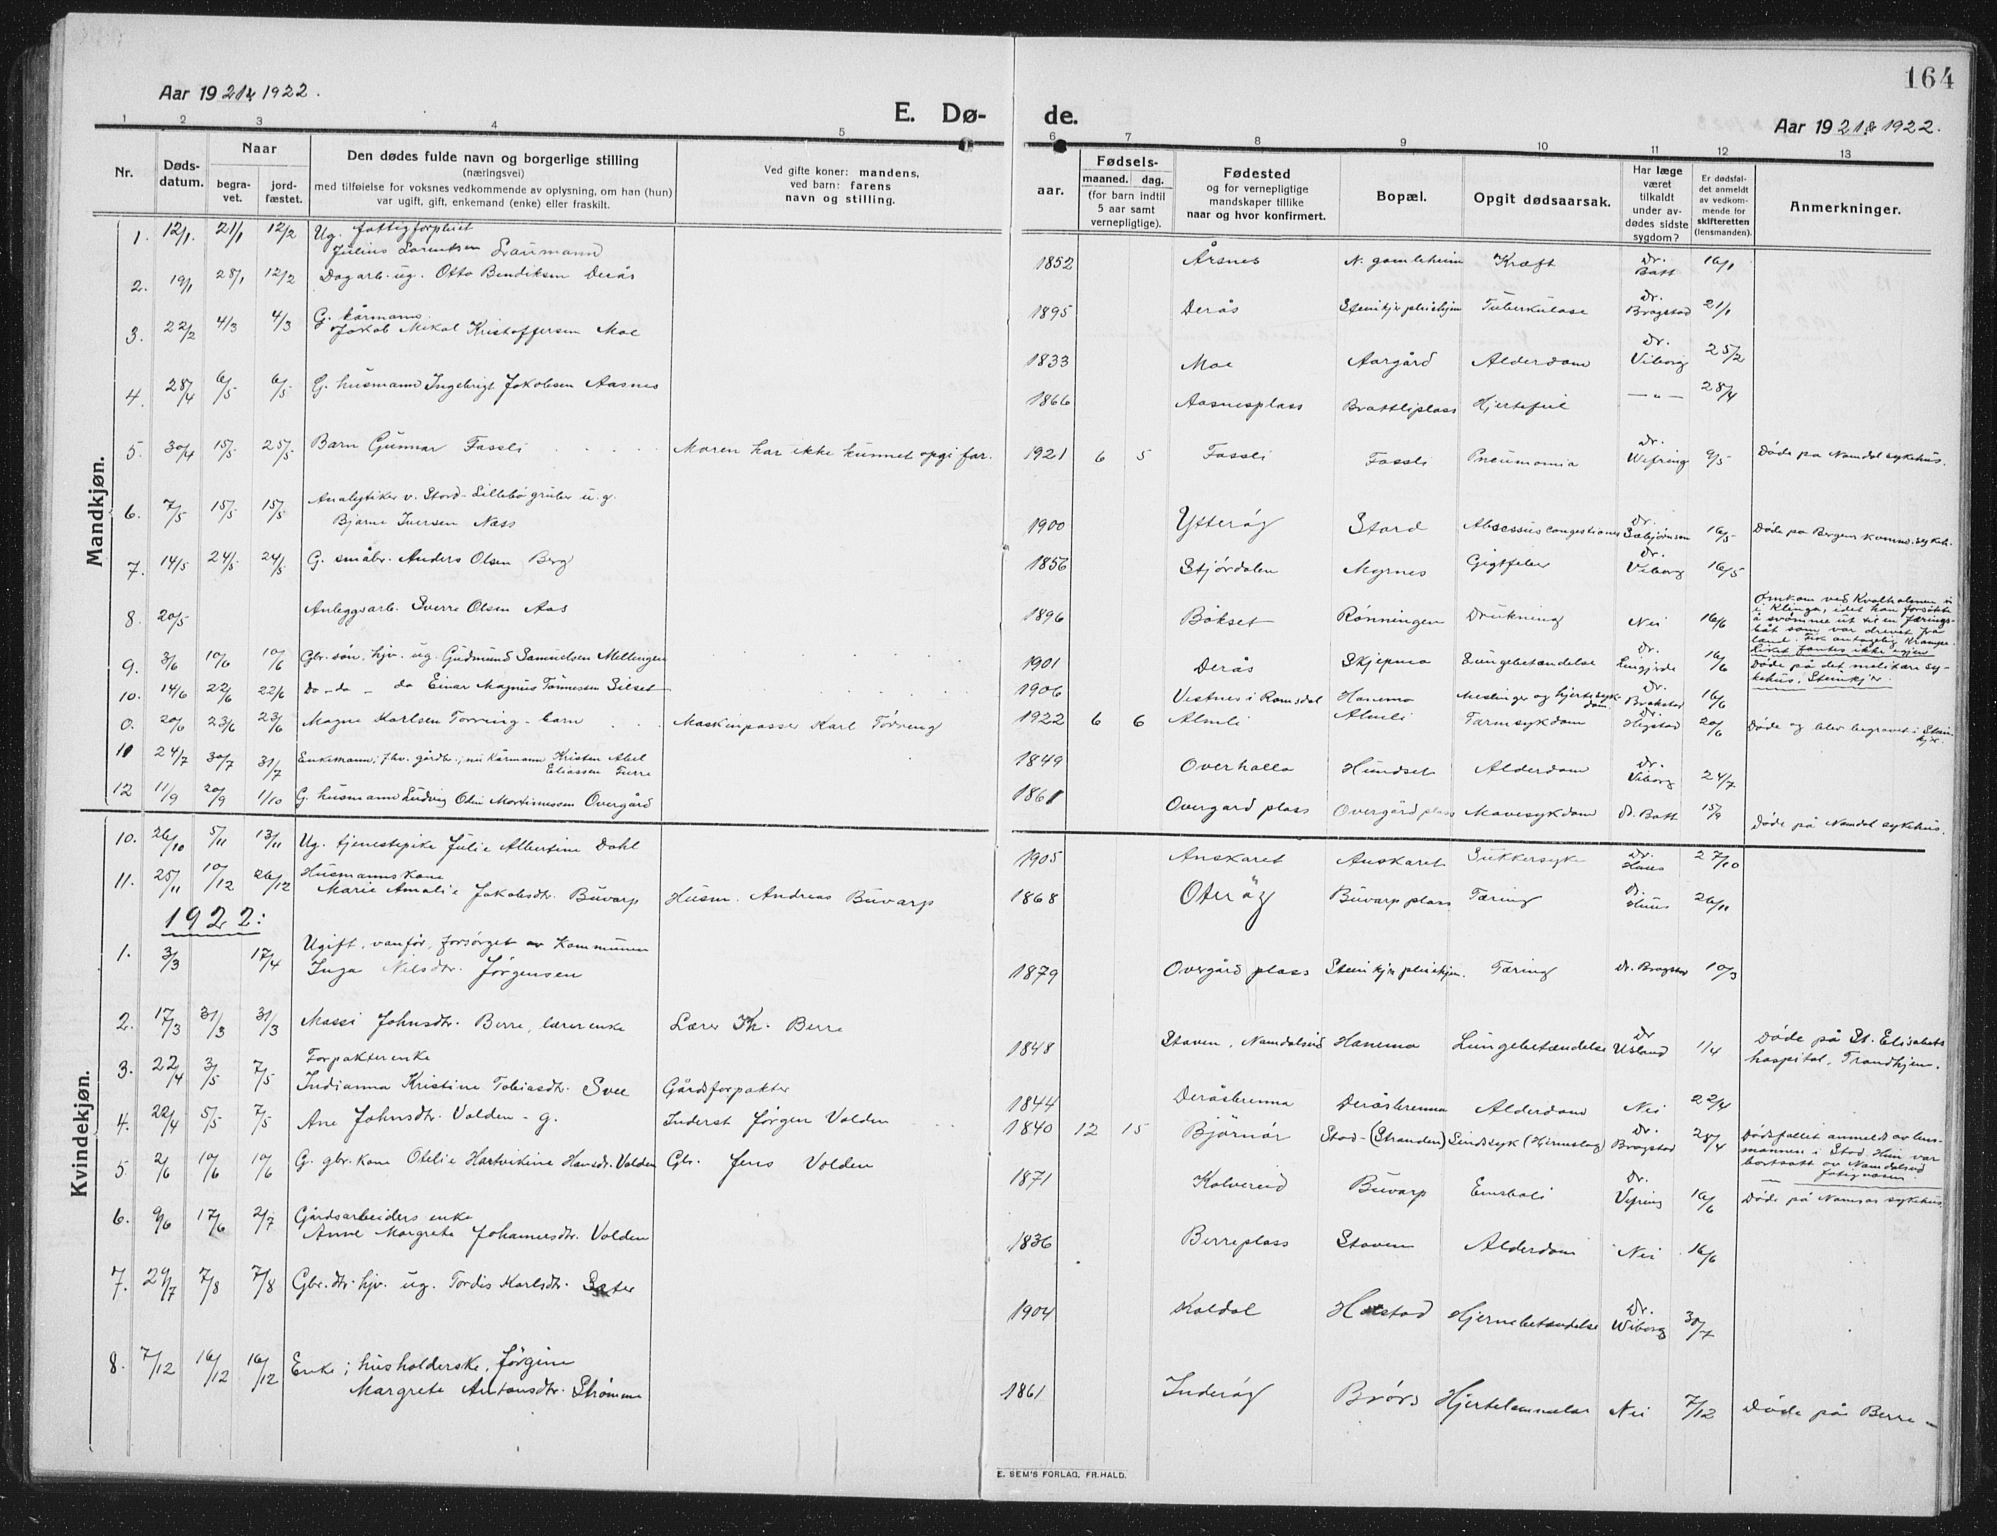 164
Aar 1921 & 1922.
E. Dø- de.
Aar 1921 & 1922.
1 2 3 4 5 6 7 8 9 10 11 12 13
Nr.
Døds-
datum.
Naar
begra-
vet.
jord-
fæstet.
Den dødes fulde navn og borgerlige stilling
(næringsvei)
med tilføielse for voksnes vedkommende av oplysning, om han (hun)
var ugift, gift, enkemand (enke) eller fraskilt.
Ved gifte koner: mandens,
ved barn: farens
navn og stilling.
aar.
Fødsels-
maaned. dag.
(for barn indtil
5 aar samt
vernepligtige).
Fødested
og for vernepligtige
mandskaper tillike
naar og hvor konfirmert.
Bopæl.
Opgit dødsaarsak.
Har læge
været
tilkaldt
under av-
dødes sidste
sygdom?
Er dødsfal-
det anmeldt
av vedkom-
mende for
skifteretten
(lensmanden).
Anmerkninger.
Mandkjøn.
1. 12/1. 21/1 12/2 Ug. fattigforpleiet
Julius Lorentsen 1852 Årsnes N. gamleheim Kræft Dr. Bott 16/1
2. 19/1 28/1 12/2 Dagarb. ug. Otto Bendiksen Derås 1895 Derås Steinkjer pleiehjem Tuberkulose Dr. Bragstad 21/1
3. 22/2 4/3 4/3 G. kårmann
Jakob Mikal Kristoffersen Moe 1833 Moe Aargård Alderdom Dr. Viborg 25/2
4. 28/4 6/5 6/5 G. husmann Ingebrigt Jakobsen Aasnes 1866 Aasnesplass Brattliplass Hjertefeil — „ — 28/4
5. 30/4 15/5 25/5 Barn Gunnar Fossli Moren har ikke kunnet opgi far. 1921 6 5 Fossli Fossli Pneumonia Dr. Wefring 9/5 Døde på Namdal sykehus.
6. 7/5 15/5 15/5 Analytiker v. Stord-Lillebø gruber u.g.
Bjarne Iversen Næss 1900 Ytterøy Stord Abscessus congestiones Dr. Sæbjørnsen 16/5 Døde på Bergens komm. sykeh.
7. 14/5 24/5 24/5 G. småbr. Anders Olsen Berg 1856 Stjørdalen Myrnes Gigtfeber Dr. Viborg 16/5
8. 20/5 Anleggsarb. Sverre Olsen Aas 1896 Bökset Rønningen Drukning Nei 16/6 Omkom ved Kvalholmen
i Klinga, idet han forsökte
å svömme ut til en færings-
båt som var drevet fra
land. Fik antagelig krampe
Liket fantes ikke igjen
9. 3/6 10/6 10/6 Gbr. søn, hjv. ug. Gudmund Samuelsen Mellingen 1901 Derås Skjepmo Lungebetændelse Dr. Lingjerde 16/6 Døde på det militære sy-
kehus, Steinkjer.
10. 14/6 22/6 22/6 Do - do - do Einar Magnus Tønnesen Silset 1906 Vestnes i Romsdal Hanemo Meslinger og hjertesyk-
dom Dr. Brakstad 16/6
0. 20/6 23/6 23/6 Magne Karlsen Torring - barn Maskinpasser Karl Törring 1922 6 6 Almli Almli Tarmsykdom Dr. Hegstad 20/6 Døde og blev begravet i Stein-
kjer.
11 24/7 30/7 31/7 Enkemann; fhv. gårdbr., nu kårmann Kristen Abel
Eliassen Furre 1849 Overhalla Hundset Alderdom Dr. Viborg 24/7
12 11/9 20/9 1/10 G. husmann Ludvig Odin Mortinussen Overgård 1861 Overgard plass Overgård plass Mavesykdom Dr. Bott 15/9 Døde på Namdal sykehus.
Kvindekjøn.
10. 26/10 5/11 13/11 Ug. tjenestepike Julie Albertine Dahl 1905 Anskaret Anskaret Sukkersyke Dr. Huus 27/10
11. 25/11 10/12 26/12 Husmannskone
Marie Amalie Jakobsdtr. Buvarp Husm. Andreas Buvarp 1868 Oterøy Buvarp plass Tæring Dr. Huus 26/11
1922:
1. 3/3 17/4 Ugift, vanför, forsörget av Kommunen
Inga Nilsdtr. Jørgensen 1879 Overgård plass Steinkjer pleiehjem. Tæring Dr. Bragstad 10/3
2. 17/3 31/3 31/3 Massi Johnsdtr. Berre, lærerenke Lærer Kh. Berre 1848 Staven, Namdalseid Hanemo Lungebetændelse Dr Usland 1/4 Døde på St. Elisabeths
hospital, Trondhjem.
3. 22/4 3/5 7/5 Forpakterenke
Indianna Kristine Tobiasdtr. Svee Gårdsforpakter 1844 Deråsbrenna Deråsbrenna Alderdom Nei 22/4
4. 22/4 5/5 7/5 Ane Johnsdtr. Volden - g. Inderst Jørgen Volden 1840 12 15 Björnör Stod - (Stranden) Sindsyk (Hjerneslag) Dr. Bragstad 28/4 Dødsfallet anmeldt av lens-
mannen i Stod. Hun var
bortsatt av Namdalseid
fatigvæsen.
5 2/6 10/6 10/6 G. gbr. kone Otelie Hartvikine Hansdtr. Volden Gbr. Jens Volden 1871 Kolvereid Buvarp Emboli Dr. Vefring 16/6 Døde på Namsos sykehus
6. 9/6 17/6 2/7 Gårdsarbeiders enke
Anne Margrete Johannesdtr. Volden 1836 Berreplass Staven Alderdom Nei 16/6
7. 29/7 7/8 7/8 Gbr. dtr. hjv. ug. Tordis Karlsdtr. Sæter 1904 Koldal Hustad Hjernebetændelse Dr. Wiborg 30/7
8. 7/12 16/12 16/12 Enke; husholderske, Jørgine
Margrete Antonsdtr. Strömme 1861 Inderøy Brørs Hjertelammelse Nei 7/12 Døde på Berre –
E. SEM'S FORLAG, FR.HALD.